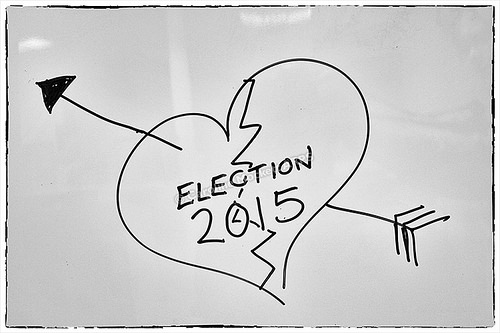 ELECTION
2015